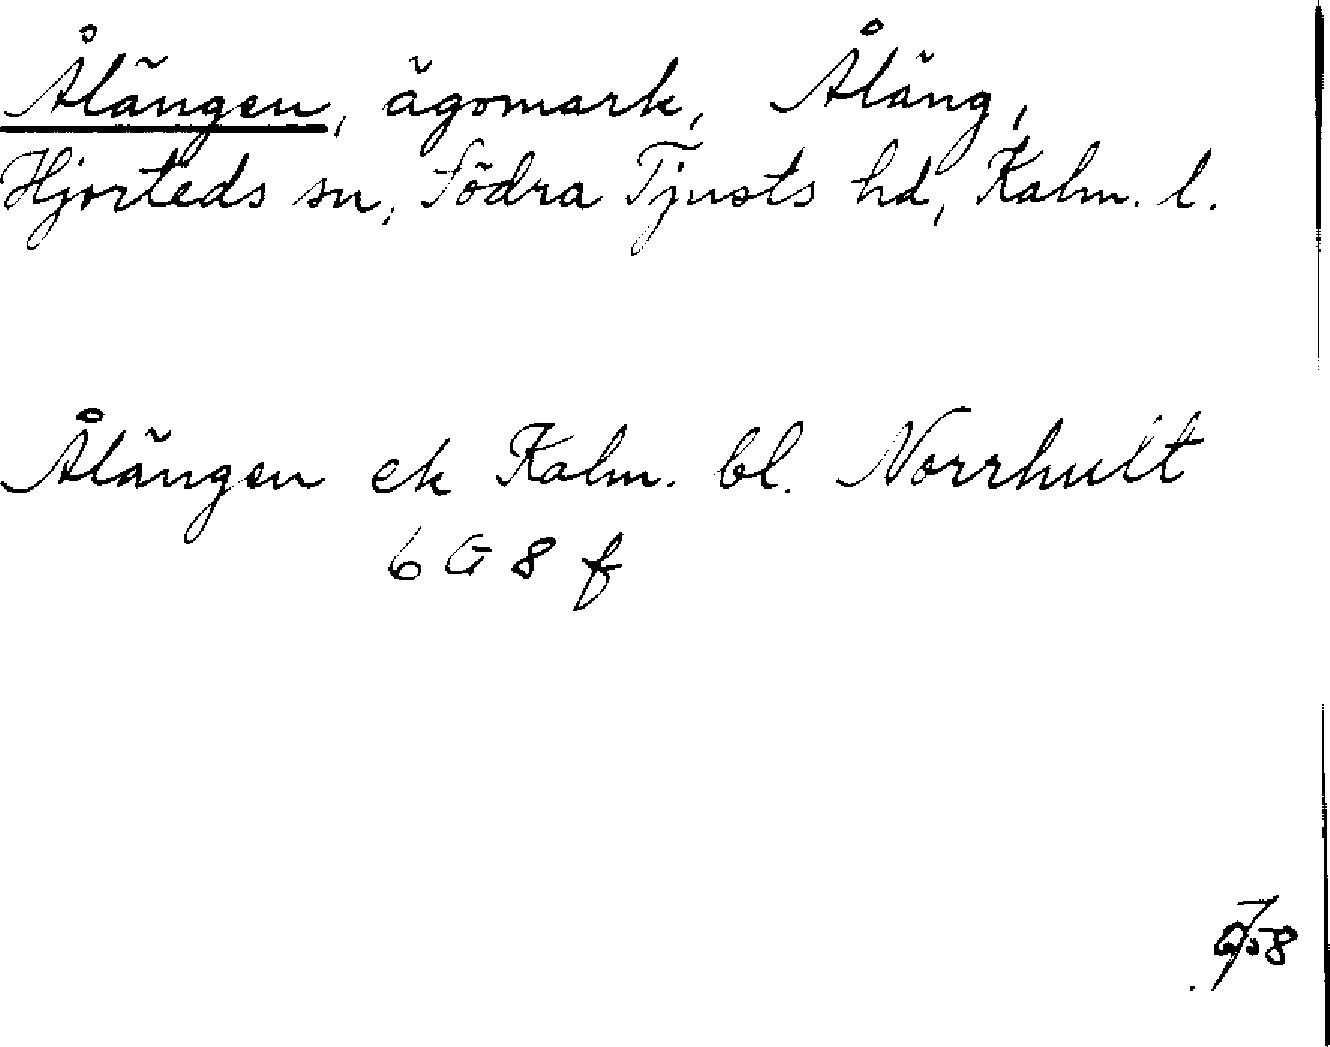 Ålängen, ägomark, Åläng,
Hjorteds sn, Södra Tjusts hd, Kalm. l.
Ålängen ek Kalm. bl. Norrhult
6 G 8 f